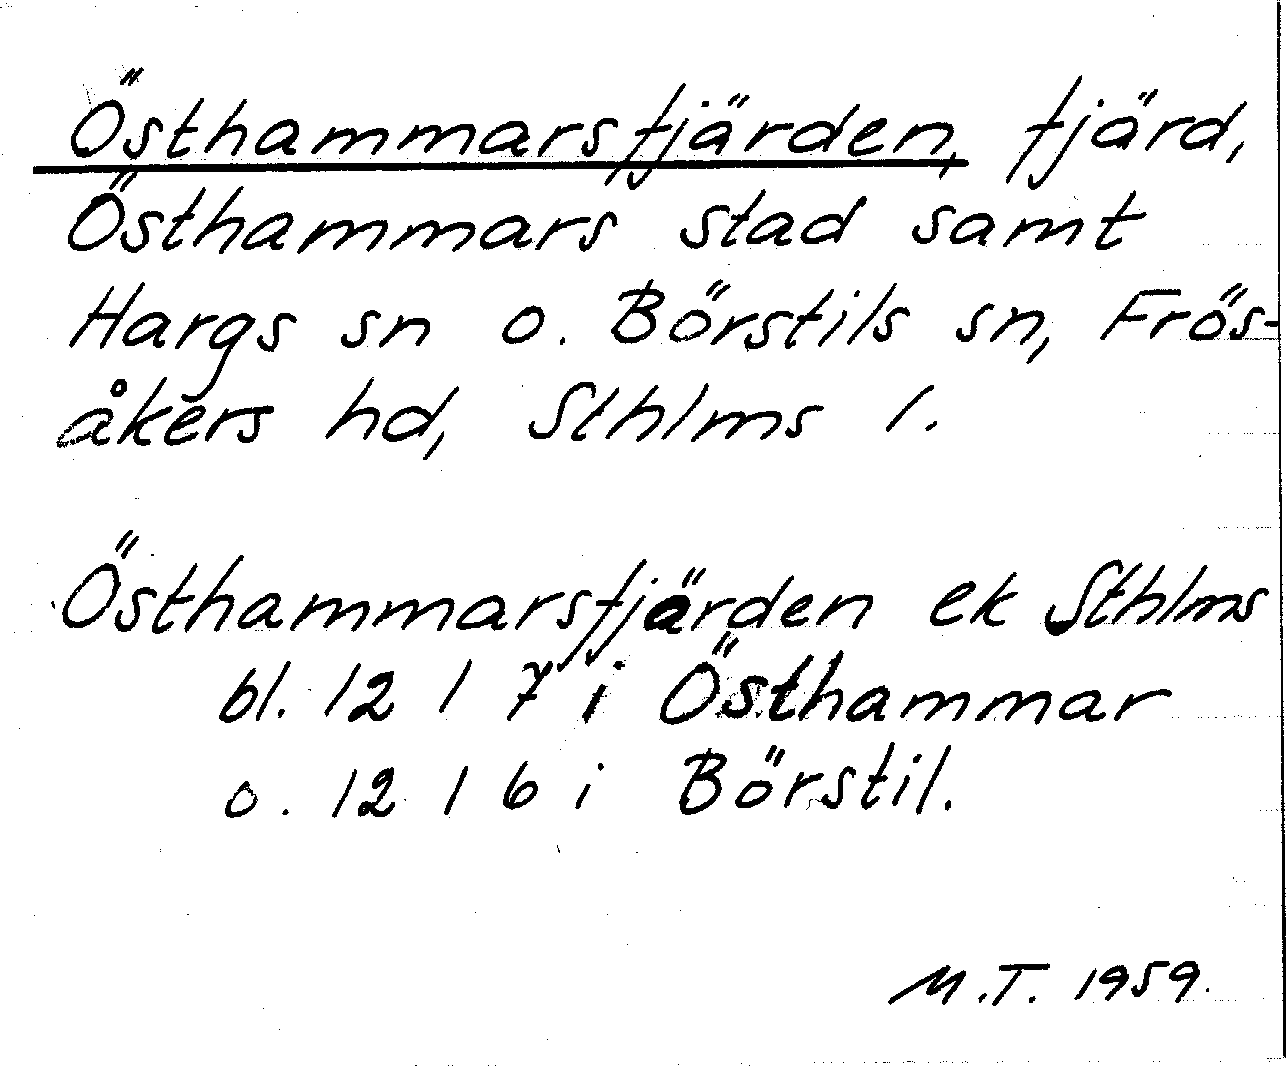 Östhammarsfjärden, fjärd,
Östhammars stad samt
Hargs sn o. Börstils sn, Frös-
åkers hd, Sthlms l.
Östhammarsfjärden ek Sthlms
bl. 12 1 7 i Östhammar
o. 12 1 6 i Börstil.
M.T. 1959.